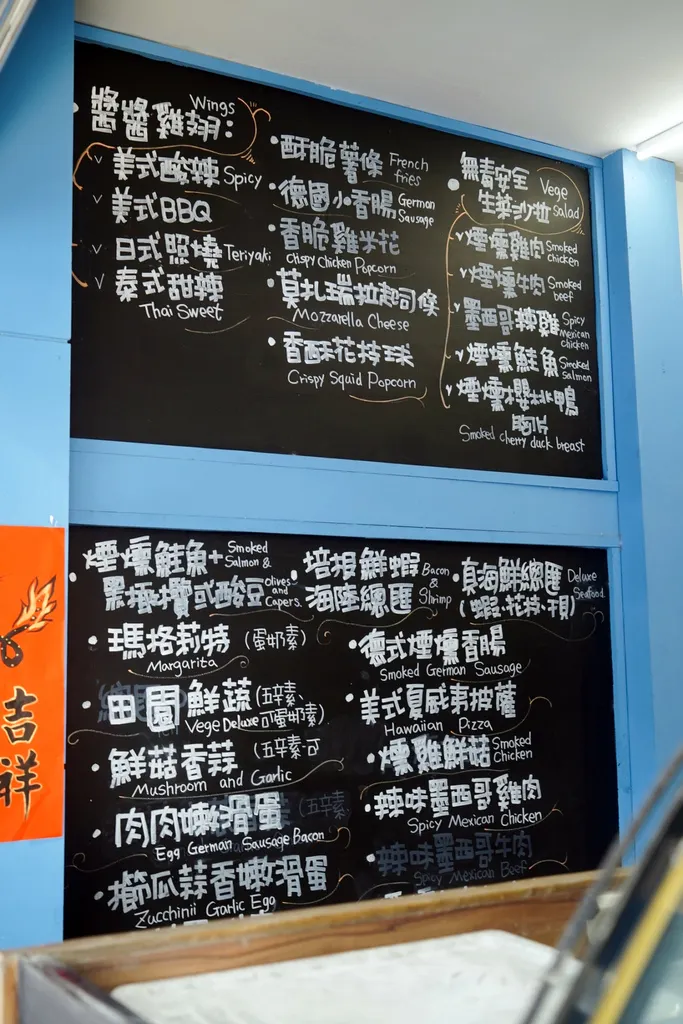 醬醬雞翅: Wings
v 美式酸辣 Spicy
v 美式BBQ
v 日式照燒 Teriyaki
v 泰式甜辣
Thai Sweet
• 酥脆薯條 French fries
• 德國小香腸 German Sausage
• 香脆雞米花
Crispy Chicken Popcorn
• 莫扎瑞拉起司條
Mozzarella Cheese
• 香酥花枝球
Crispy Squid Popcorn
• 無毒安全 Vege
生菜沙拉 salad
v 煙燻雞肉 Smoked chicken
v 煙燻牛肉 Smoked beef
v 墨西哥辣雞 Spicy Mexican chicken
v 煙燻鮭魚 Smoked salmon
v 煙燻櫻桃鴨
胸片
Smoked cherry duck breast
• 煙燻鮭魚+ Smoked Salmon &
黑橄欖或酸豆 Olives and Capers.
• 瑪格莉特 (蛋奶素)
Margarita
• 田園鮮蔬 (五辛素、
Vege Deluxe 可蛋奶素)
• 鮮菇香蒜 (五辛素可
Mushroom and Garlic
• 肉肉嫩滑蛋 (五辛素
Egg German Sausage Bacon
• 櫛瓜蒜香嫩滑蛋
Zucchinii Garlic Egg
• 培根鮮蝦 Bacon &
海陸總匯 Shrimp
• 德式煙燻香腸
Smoked German Sausage
• 美式夏威夷披薩
Hawaiian Pizza
• 燻雞鮮菇 Smoked Chicken
• 辣味墨西哥雞肉
Spicy Mexican Chicken
• 辣味墨西哥牛肉
Spicy Mexican Beef
• 真海鮮總匯 Deluxe
(蝦·花枝·干貝) Seafood
吉祥